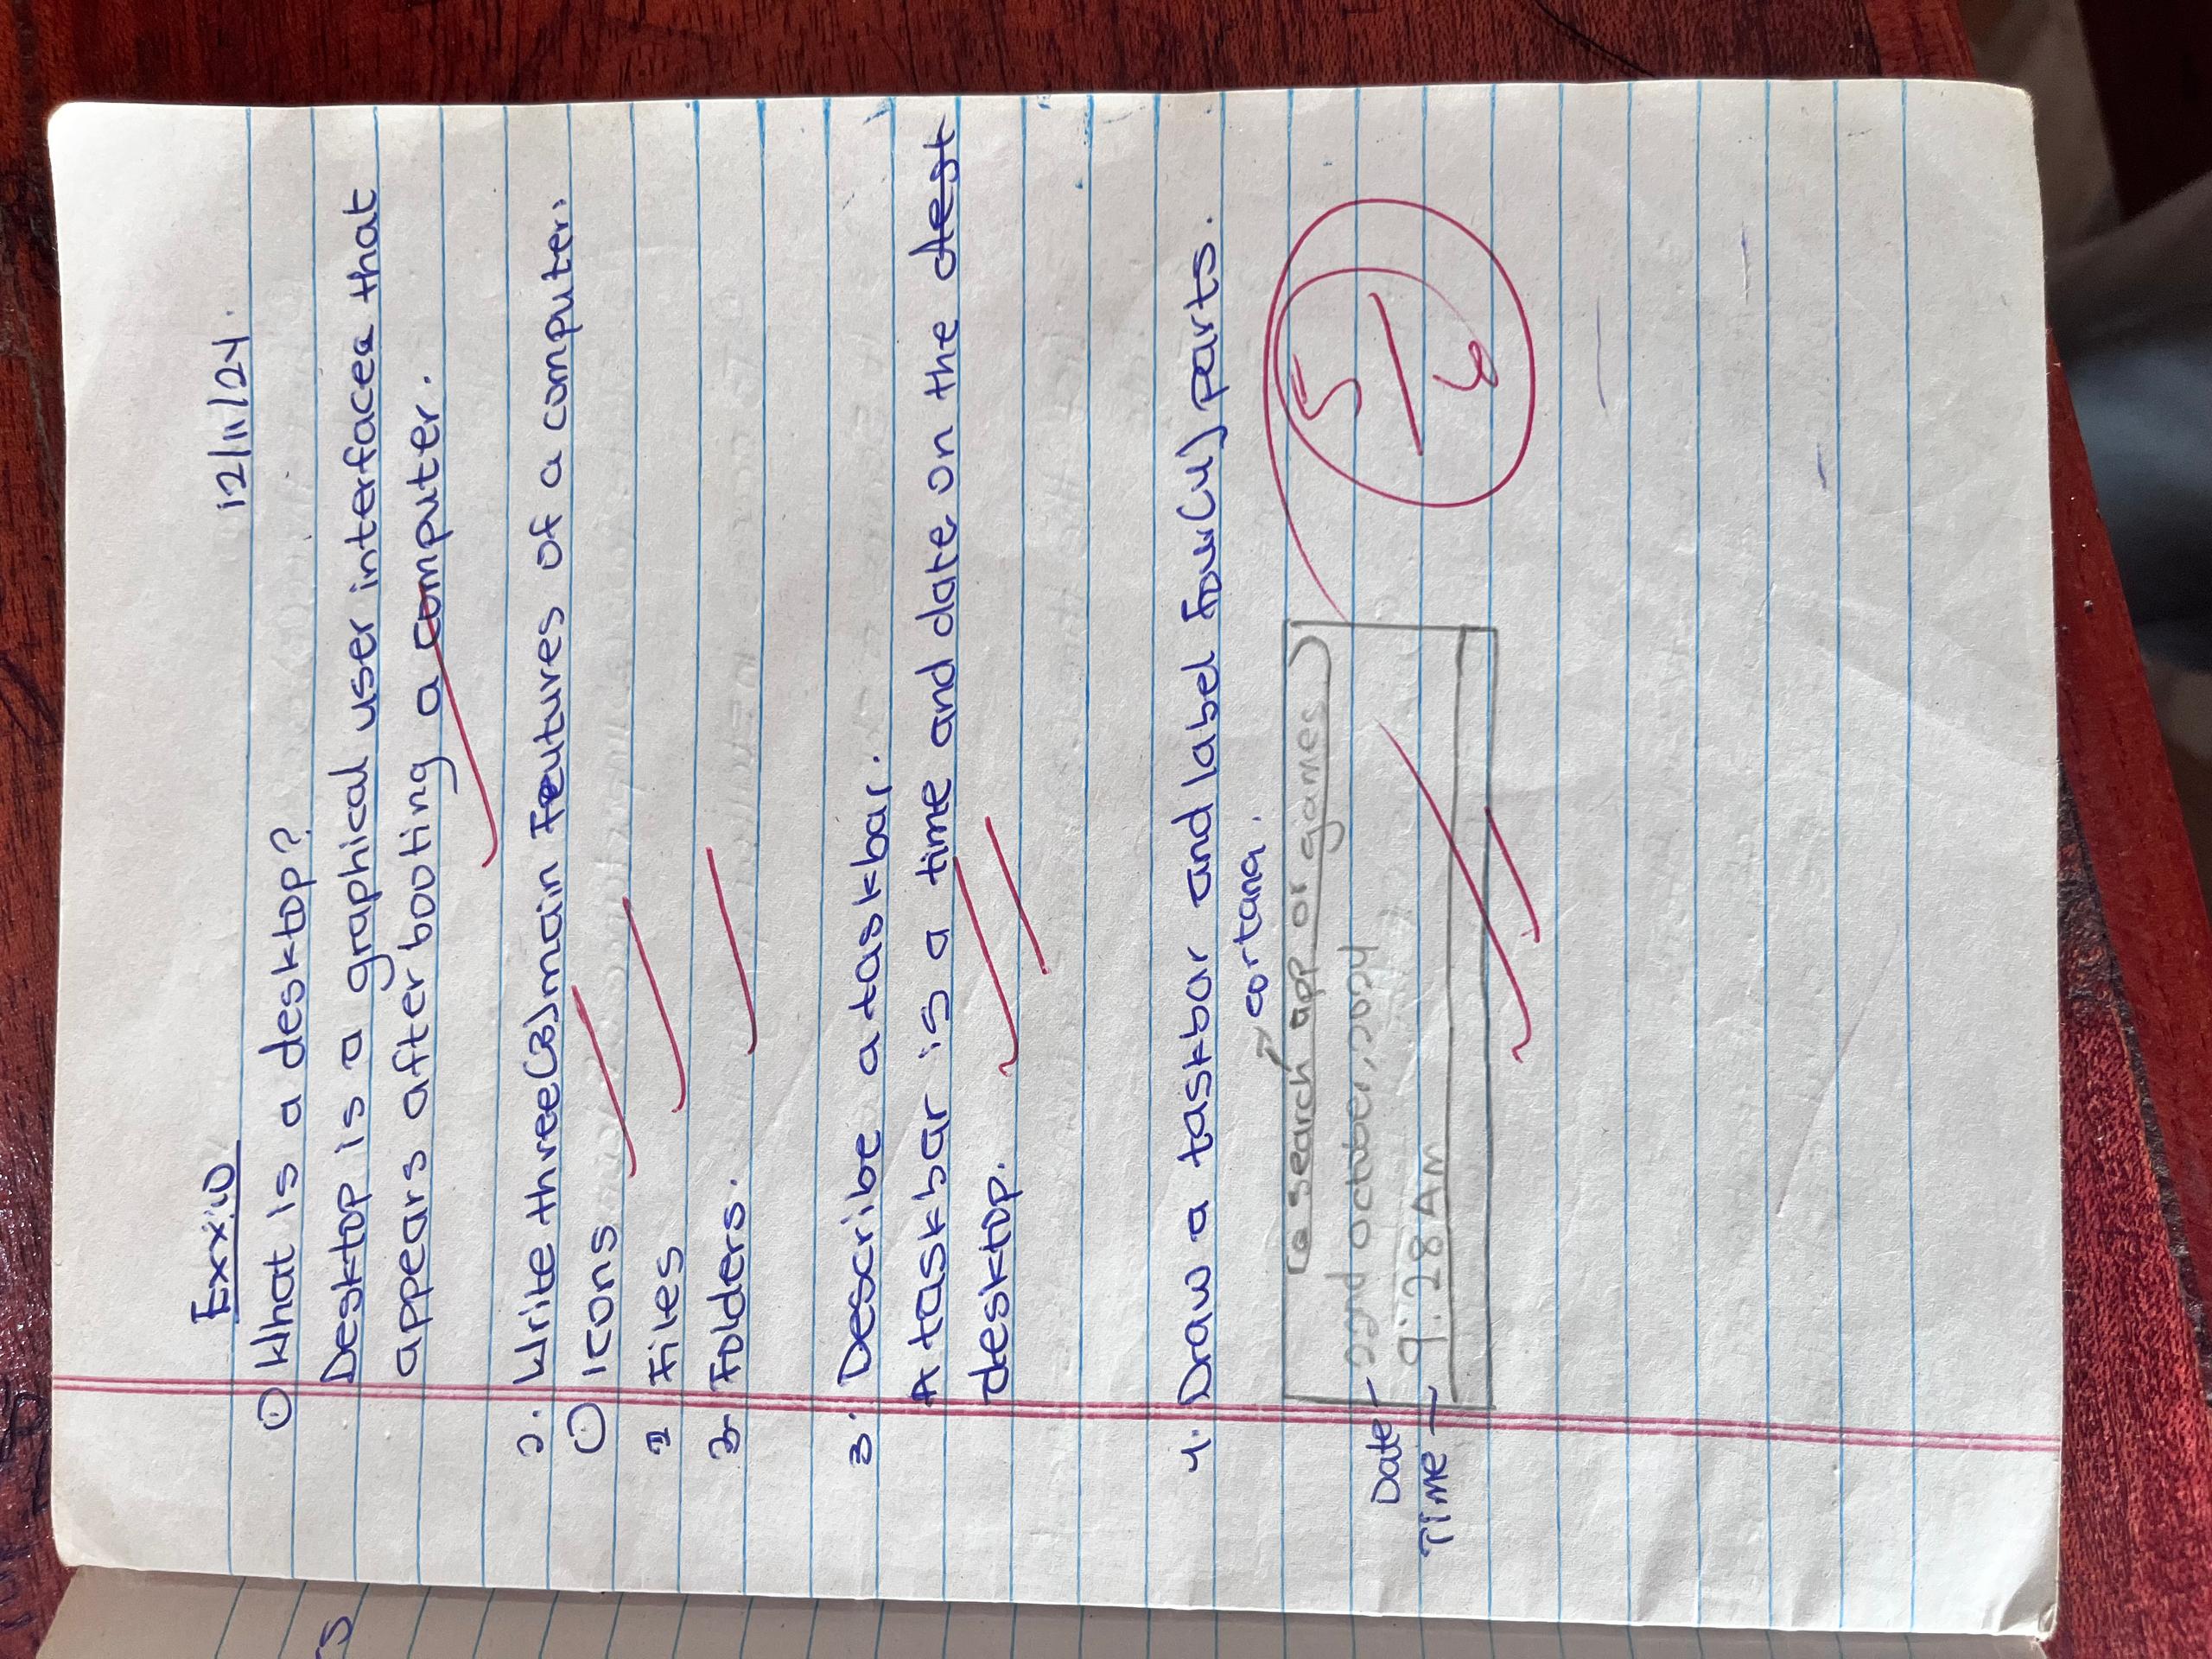 Exx:10
12/11/24.
① What is a desktop?
Desktop is a graphical user interfaces that
appears after booting a computer.
2. Write three(3)main Features of a computer.
① Icons
2 Files
3 Folders.
3. Describe a taskbar.
A taskbar is a time and date on the dest
desktop.
4. Draw a taskbar and label Four(4) parts.
cortana.
search app or games
Date - 22nd october, 2024
Time - 9:28 AM
5
6
rs